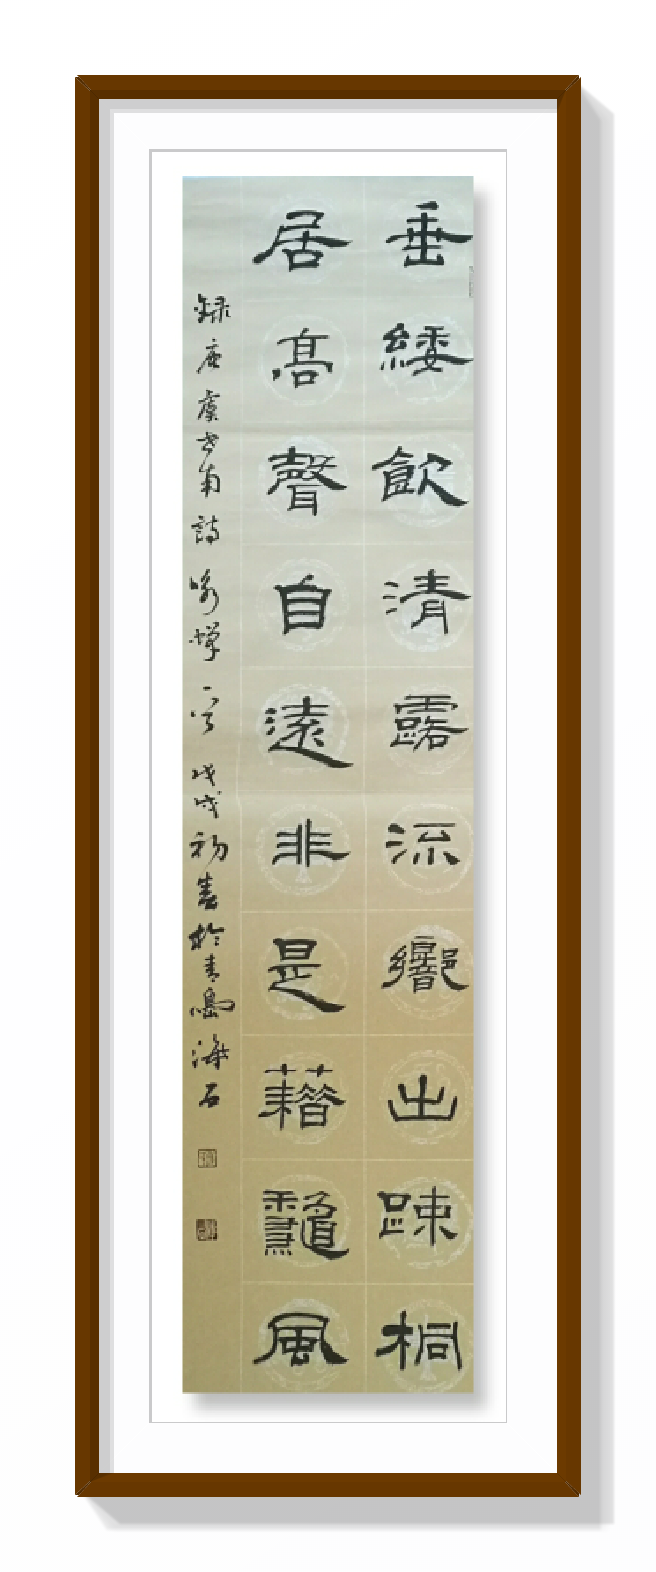 垂緌飲清露流響出踈桐
居高聲自遠非是藉龝風
録唐虞世南詩咏蟬一首戊戌初春於青島海石